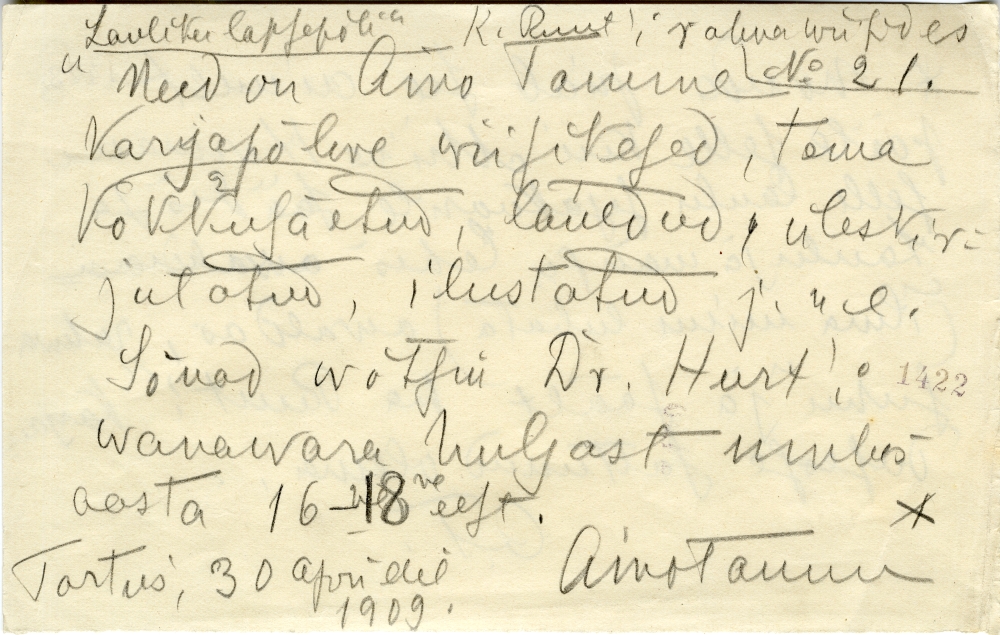 "Lauliku lapsepõli" K. Ruut'i rahva wiisides
No 21.
" Need on Aino Tamme
Karjapõlwe wiisikesed, tema
kokkusäetud, lauldud, ülesk̄ir-
jutatud, ilustatud j. n. e.
Sõnad wõtsin Dr. Hurt'i
1422
wanawara hulgast umbes
aasta 16-18 ne eest.
x
Tartus, 30 aprillil
1909.
Aino Tamm